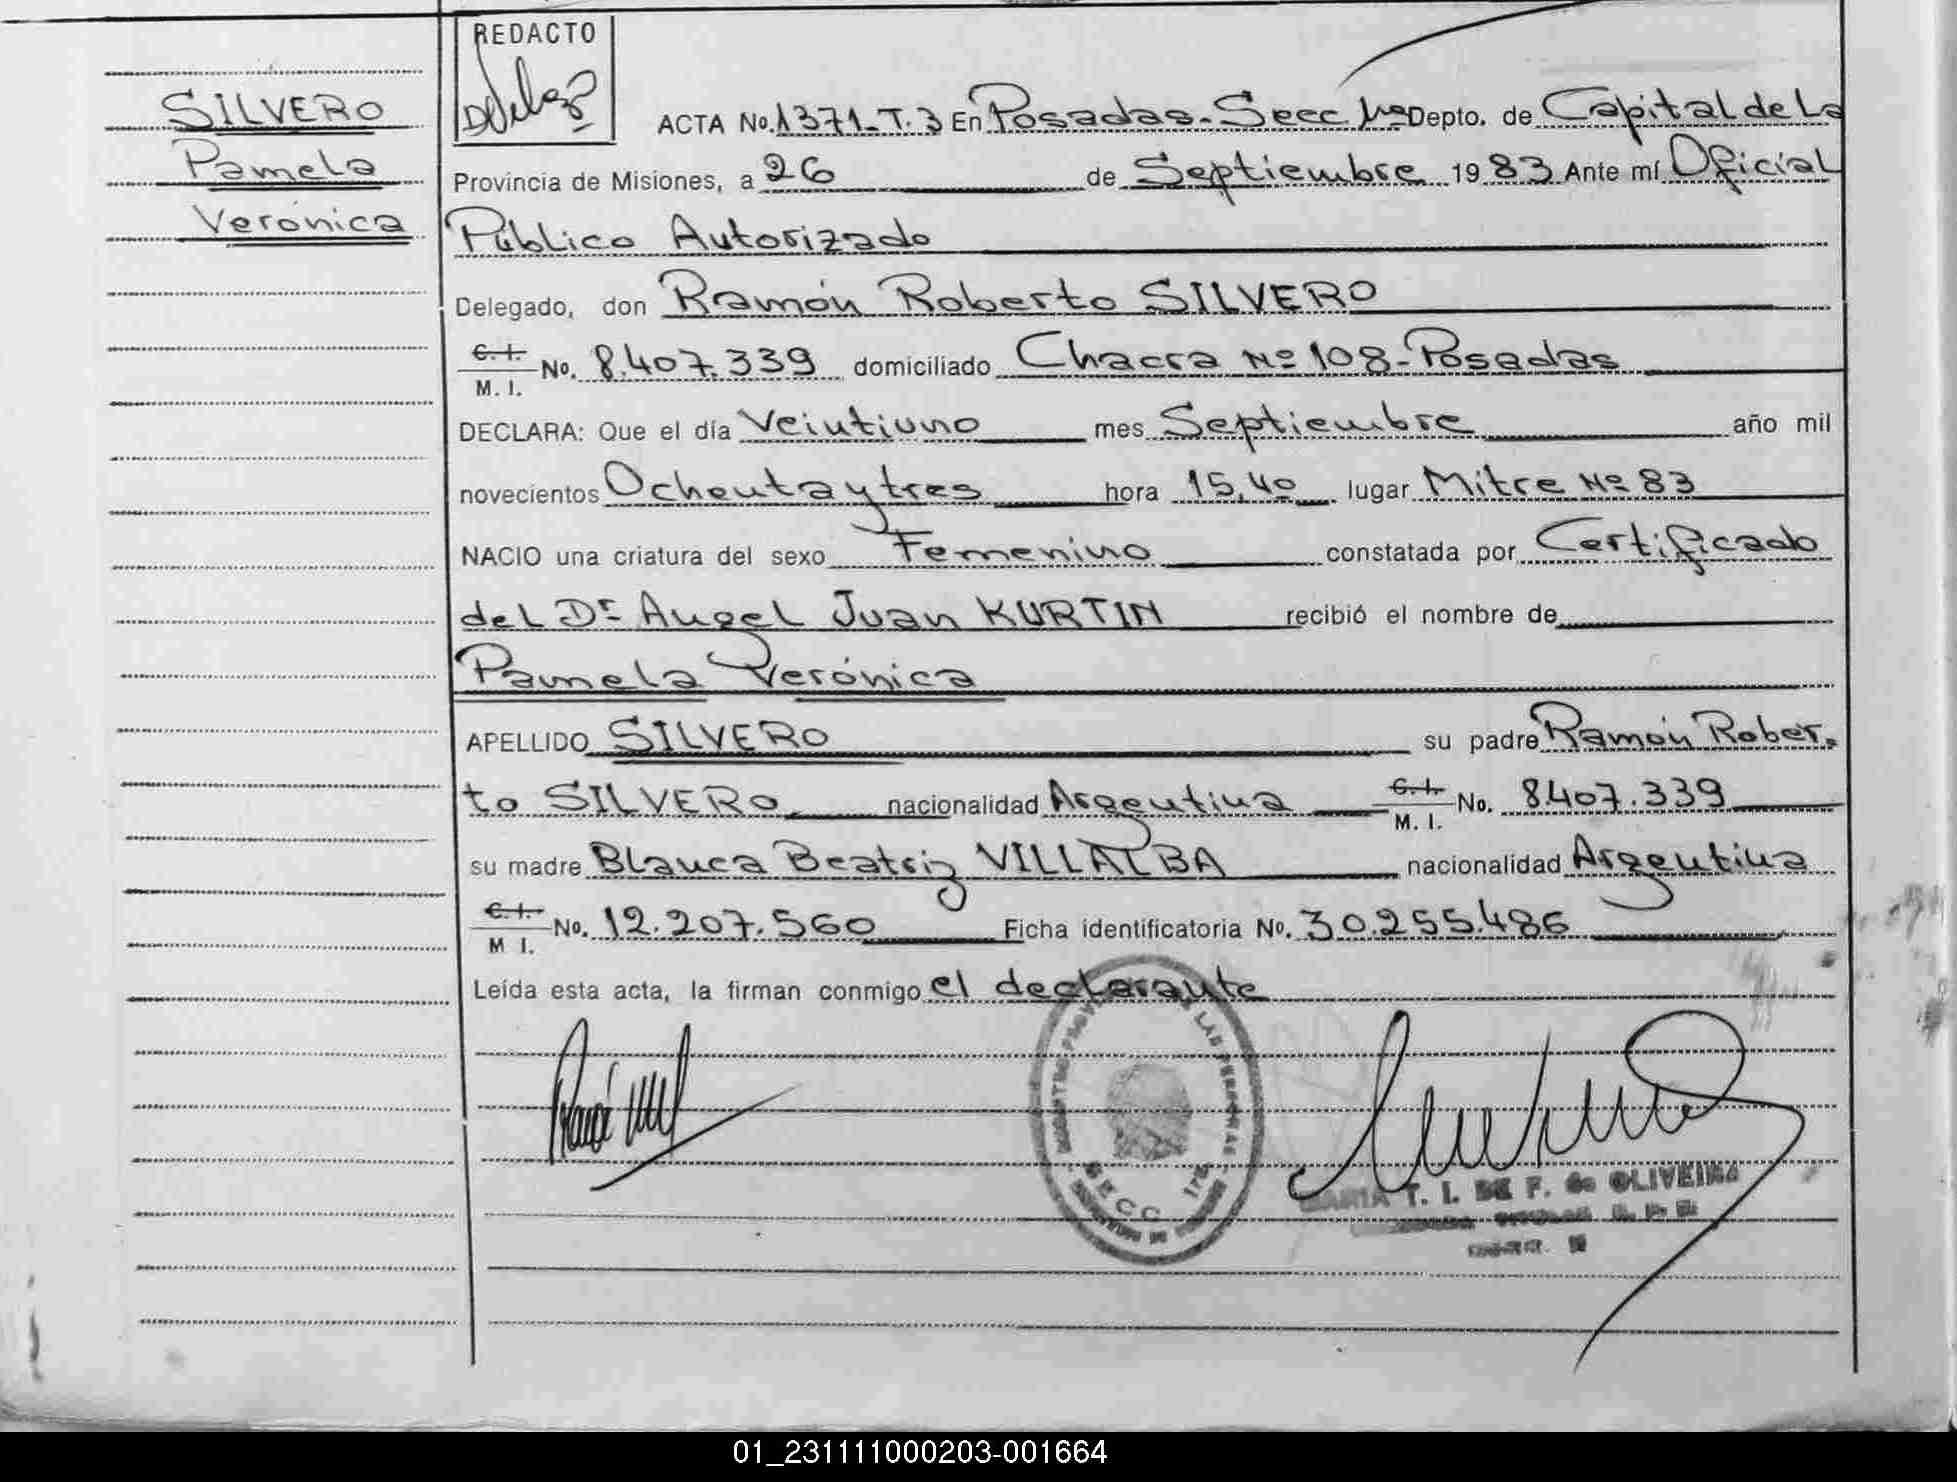 REDACTO
SILVERO
Pamela
Verónica
ACTA No. 1371-T.3 En Posadas-Secc 1ª Depto. de Capital de La
Provincia de Misiones, a 26 de Septiembre 1983 Ante mí Oficial
Público Autorizado
Delegado, don Ramón Roberto SILVERO
C.I. M.I. No. 8.407.339 domiciliado Chacra Nº 108-Posadas
DECLARA: Que el día Veintiuno mes Septiembre año mil
novecientos Ochenta y tres hora 15,40 lugar Mitre Nº 83
NACIO una criatura del sexo Femenino constatada por Certificado
del Dr Angel Juan KURTIN recibió el nombre de
Pamela Verónica
APELLIDO SILVERO su padre Ramón Rober-
to SILVERO nacionalidad Argentina C.I. M.I. No. 8.407.339
su madre Blanca Beatriz VILLALBA nacionalidad Argentina
C.I. M I. No. 12.207.560 Ficha identificatoria No. 30.255.486
Leída esta acta, la firman conmigo el declarante
SECC 1ra
MARIA T. I. DE F. de OLIVEIRA
01_231111000203-001664